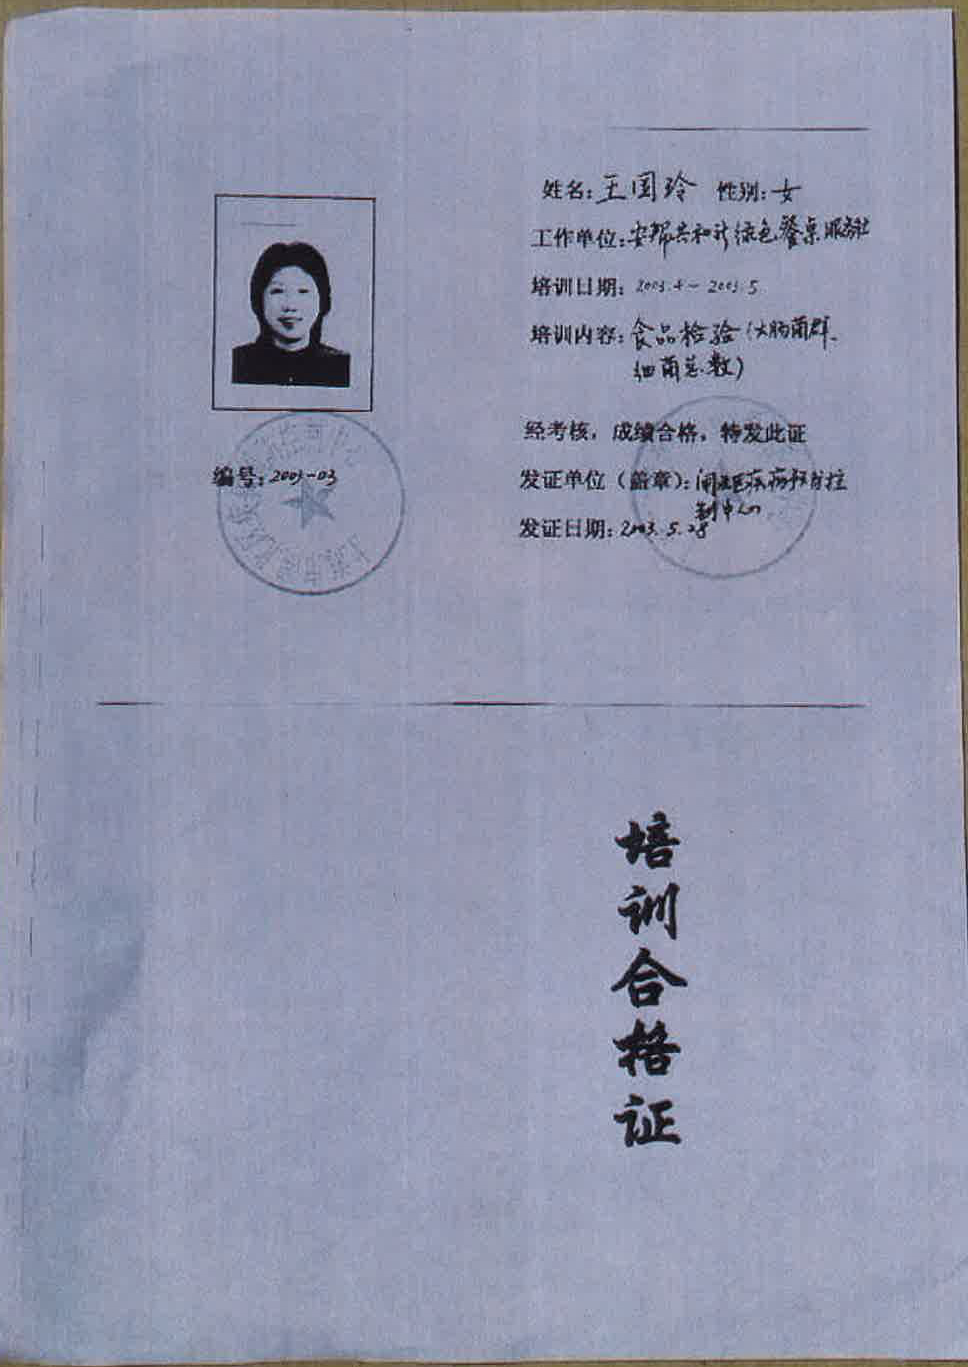 姓名:王国玲 性别:女
工作单位:安邦共和新绿色餐桌服务社
培训日期:2003.4-2003.5
培训内容:食品检验(大肠菌群、
细菌总数)
经考核,成绩合格,特发此证
编号:2003-03
发证单位(盖章):闸北区疾病预防控
制中心
发证日期:2003.5.28
培
训
合
格
证